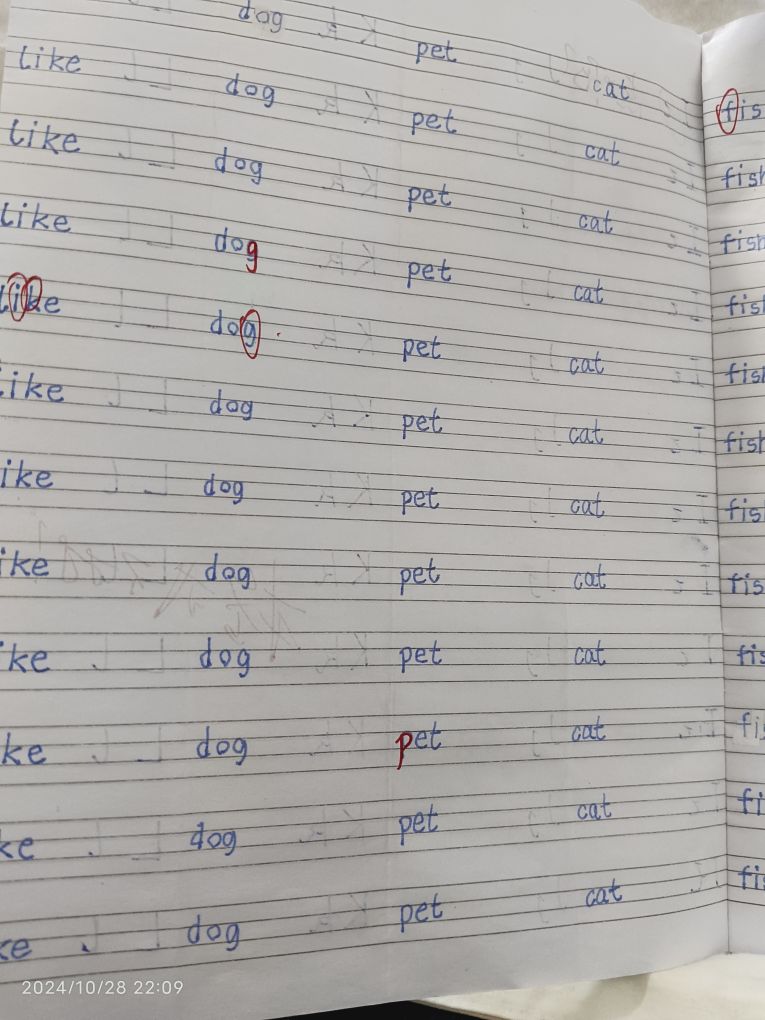 dog pet cat
like dog pet cat fis
like dog pet cat fish
like dog pet cat fish
like dog pet cat fish
like dog pet cat fish
like dog pet cat fish
like dog pet cat fis
ike dog pet cat fis
ke dog pet cat fis
ke dog pet cat fi
ke dog pet cat fi
ke dog pet cat fi
2024/10/28 22:09